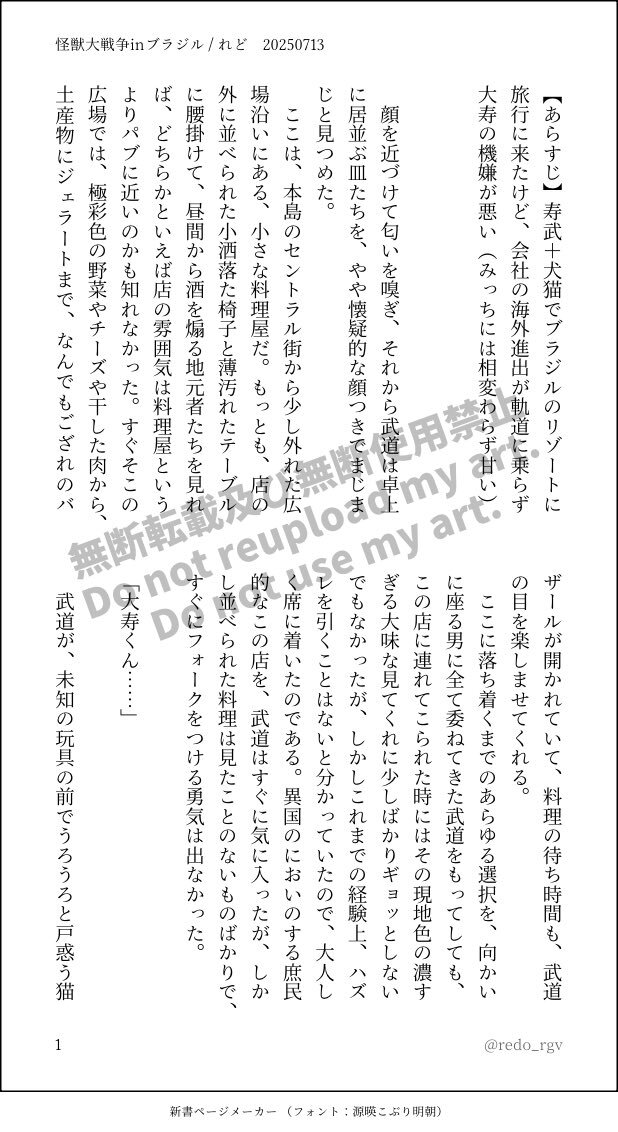 怪獣大戦争inブラジル / れど　20250713
【あらすじ】寿武＋犬猫でブラジルのリゾートに
旅行に来たけど、会社の海外進出が軌道に乗らず
大寿の機嫌が悪い（みっちには相変わらず甘い）
　顔を近づけて匂いを嗅ぎ、それから武道は卓上
に居並ぶ皿たちを、やや懐疑的な顔つきでまじま
じと見つめた。
　ここは、本島のセントラル街から少し外れた広
場沿いにある、小さな料理屋だ。もっとも、店の
外に並べられた小洒落た椅子と薄汚れたテーブル
に腰掛けて、昼間から酒を煽る地元者たちを見れ
ば、どちらかといえば店の雰囲気は料理屋という
よりパブに近いのかも知れなかった。すぐそこの
広場では、極彩色の野菜やチーズや干した肉から、
土産物にジェラートまで、なんでもござれのバ
ザールが開かれていて、料理の待ち時間も、武道
の目を楽しませてくれる。
　ここに落ち着くまでのあらゆる選択を、向かい
に座る男に全て委ねてきた武道をもってしても、
この店に連れてこられた時にはその現地色の濃す
ぎる大味な見てくれに少しばかりギョッとしない
でもなかったが、しかしこれまでの経験上、ハズ
レを引くことはないと分かっていたので、大人し
く席に着いたのである。異国のにおいのする庶民
的なこの店を、武道はすぐに気に入ったが、しか
し並べられた料理は見たことのないものばかりで、
すぐにフォークをつける勇気は出なかった。
「大寿くん……」
　武道が、未知の玩具の前でうろうろと戸惑う猫
無断転載及び無断使用禁止
Do not reupload my art.
Do not use my art.
1
@redo_rgv
新書ページメーカー（フォント：源暎こぶり明朝）